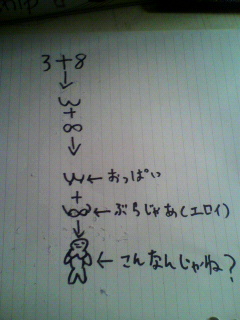 3+8
↓
ω
+
∞
↓
ω←おっぱい
+
∞←ぶらじゃあ(エロイ)
↓
←こんなんじゃね?